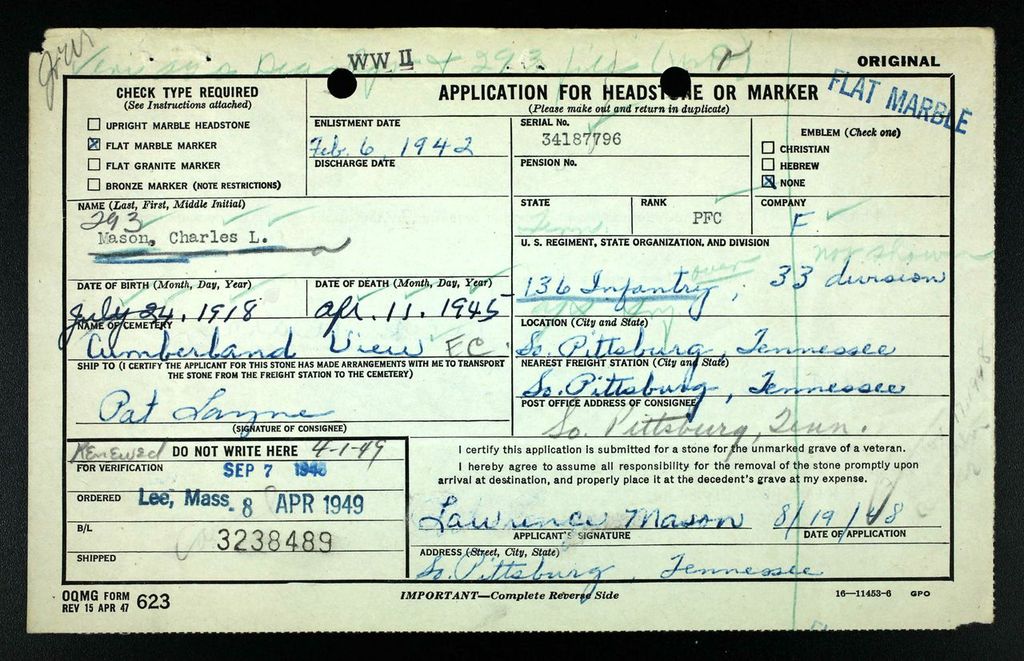 WW II
ORIGINAL
FLAT MARBLE
APPLICATION FOR HEADSTONE OR MARKER
(Please make out and return in duplicate)
CHECK TYPE REQUIRED
(See Instructions attached)
UPRIGHT MARBLE HEADSTONE
FLAT MARBLE MARKER
FLAT GRANITE MARKER
BRONZE MARKER (NOTE RESTRICTIONS)
ENLISTMENT DATE
Feb. 6, 1942
DISCHARGE DATE
SERIAL No.
34187796
PENSION No.
EMBLEM (Check one)
CHRISTIAN
HEBREW
NONE
NAME (Last, First, Middle Initial)
293
Mason, Charles L.
STATE
Tenn.
RANK
PFC
COMPANY
F
U. S. REGIMENT, STATE ORGANIZATION, AND DIVISION
not shown
over
136 Infantry, 33 division
DATE OF BIRTH (Month, Day, Year)
July 24, 1918
DATE OF DEATH (Month, Day, Year)
Apr. 11, 1945
NAME OF CEMETERY
Cumberland View EC.
LOCATION (City and State)
So. Pittsburg, Tennessee
SHIP TO (I CERTIFY THE APPLICANT FOR THIS STONE HAS MADE ARRANGEMENTS WITH ME TO TRANSPORT
THE STONE FROM THE FREIGHT STATION TO THE CEMETERY)
Pat Layne
(SIGNATURE OF CONSIGNEE)
NEAREST FREIGHT STATION (City and State)
So. Pittsburg, Tennessee
POST OFFICE ADDRESS OF CONSIGNEE
So. Pittsburg, Tenn.
Renewed DO NOT WRITE HERE 4-1-49
FOR VERIFICATION
SEP 7 1948
ORDERED
Lee, Mass. 8 APR 1949
B/L
3238489
SHIPPED
I certify this application is submitted for a stone for the unmarked grave of a veteran.
I hereby agree to assume all responsibility for the removal of the stone promptly upon
arrival at destination, and properly place it at the decedent's grave at my expense.
Lawrence Mason 8/19/48
APPLICANT'S SIGNATURE
DATE OF APPLICATION
ADDRESS (Street, City, State)
So. Pittsburg, Tennessee
OQMG FORM
REV 15 APR 47 623
IMPORTANT—Complete Reverse Side
16—11453-6 GPO